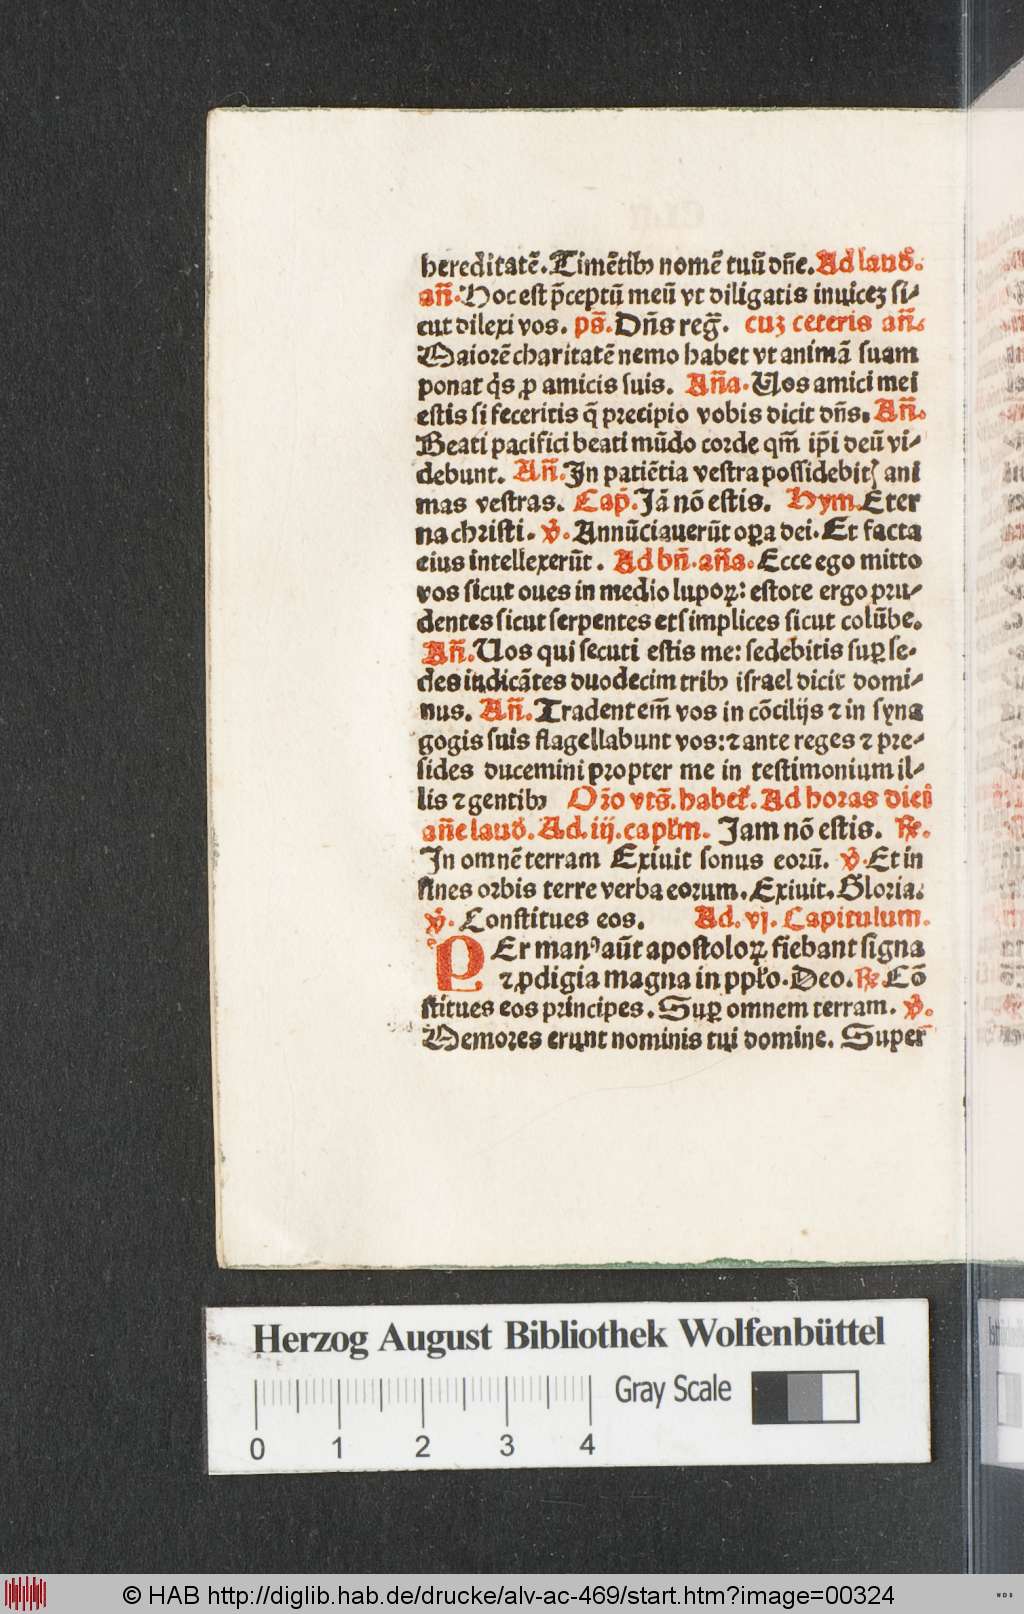 hereditatē. Timētibꝰ nomē tuū dn̄e. Ad laud̄.
an̄. Hoc est p̄ceptū meū vt diligatis inuicez si-
cut dilexi vos. ps̄. Dn̄s reḡ. cuz ceteris an̄.
Maiorē charitatē nemo habet vt animā suam
ponat q̇s ꝓ amicis suis. An̄a. Uos amici mei
estis si feceritis q̄ precipio vobis dicit dn̄s. An̄.
Beati pacifici beati mūdo corde qm̄ ip̄i deū vi-
debunt. An̄. In patiētia vestra possidebitꝭ ani
mas vestras. Cap̄. Jā nō estis. Hym. Eter
na christi. ℣. Annūciauerūt oꝑa dei. Et facta
eius intellexerūt. Ad bn̄. an̄a. Ecce ego mitto
vos sicut oues in medio lupoꝝ: estote ergo pru-
dentes sicut serpentes et simplices sicut colūbe.
An̄. Uos qui secuti estis me: sedebitis suꝑ se-
des iudicātes duodecim tribꝰ israel dicit domi-
nus. An̄. Tradent em̄ vos in cōcilijs ⁊ in syna
gogis suis flagellabunt vos: ⁊ ante reges ⁊ pre-
sides ducemini propter me in testimonium il-
lis ⁊ gentibꝰ Or̄o vts̄. habet̄. Ad horas diei
an̄e laud̄. Ad. iij. capłm. Jam nō estis. ℞.
In omnē terram Exiuit sonus eorū. ℣. Et in
fines orbis terre verba eorum. Exiuit. Gloria.
℣. Constitues eos. Ad. vj. Capitulum.
PEr manꝰ aūt apostoloꝝ fiebant signa
⁊ ꝓdigia magna in ppło. Deo. ℞. Cō
stitues eos principes. Suꝑ omnem terram. ℣.
Memores erunt nominis tui domine. Super
Herzog August Bibliothek Wolfenbüttel
Gray Scale
0 1 2 3 4
© HAB http://diglib.hab.de/drucke/alv-ac-469/start.htm?image=00324